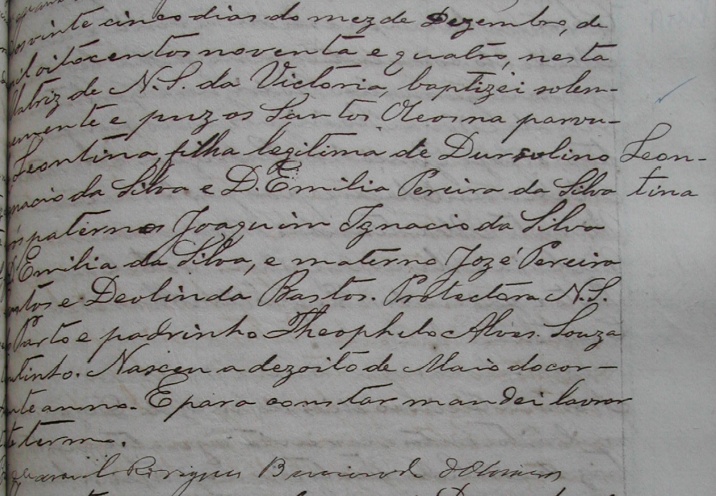 vinte cinco dias do mez de Dezembro, de
mil oitocentos noventa e quatro, nesta
Matriz de N.S. da Victoria, baptizei solem-
mente e puz os Santos Oleos na parvu-
Leontina, filha legitima de Dursulino
Ignacio da Silva e D. Emilia Pereira da Silva
paternos Joaquim Ignacio da Silva
Emilia da Silva, e materno Jozé Pereira
e Deolinda Bastos. Protectora N.S.
Parto e padrinho Theophilo Alves Souza
tinho. Nasceu a dezoito de Maio do cor-
nte anno. E para constar mandei lavrar
te termo.
Leon-
tina